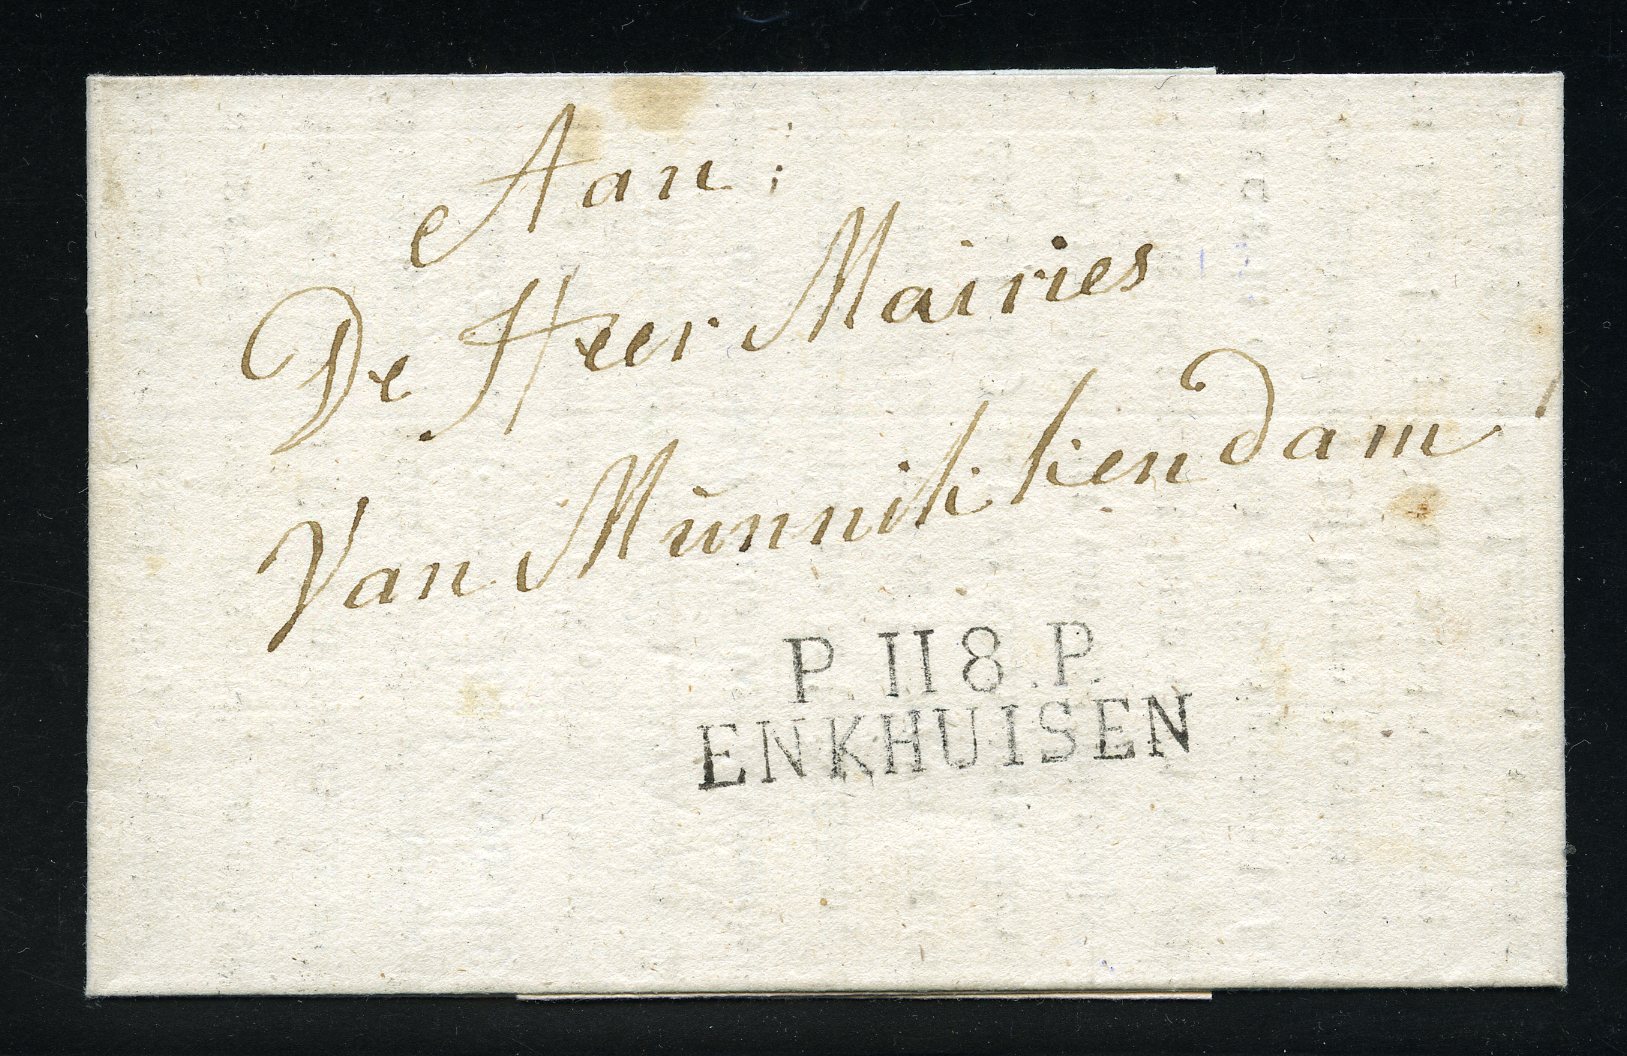 Aan:
De Heer Mairies
Van Munnikkendam
P. 118. P.
ENKHUISEN